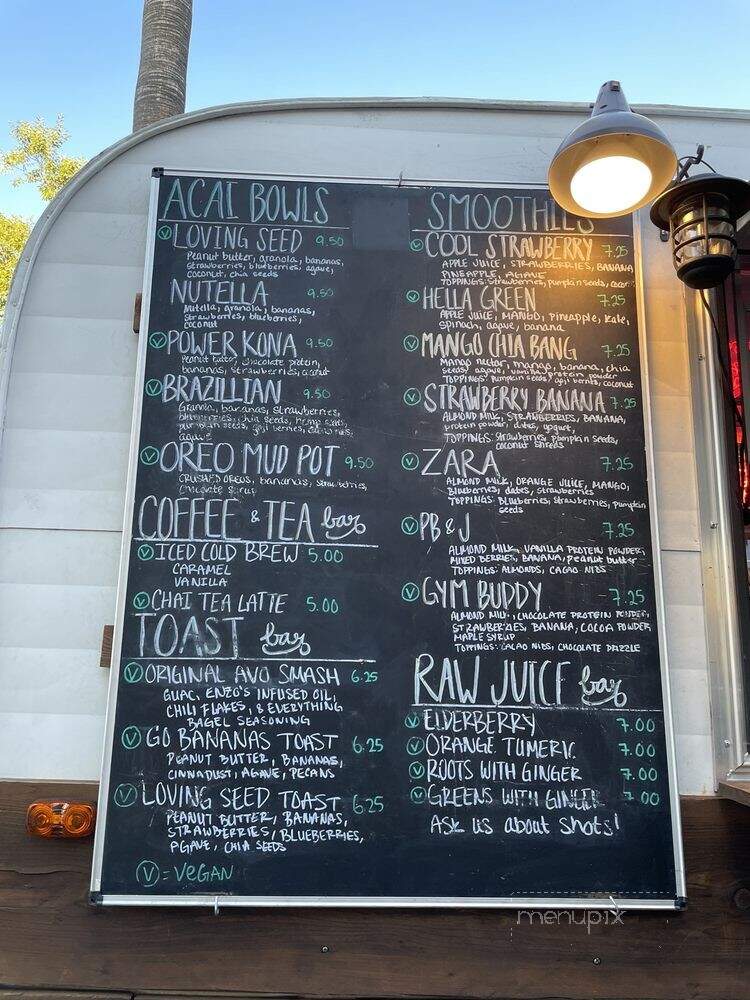 ACAI BOWLS
V LOVING SEED 9.50
Peanut butter, granola, bananas,
strawberries, blueberries, agave,
coconut, chia seeds
NUTELLA 9.50
Nutella, granola, bananas,
strawberries, blueberries,
coconut
V POWER KONA 9.50
Peanut butter, chocolate protein,
bananas, strawberries, coconut
V BRAZILLIAN 9.50
Granola, bananas, strawberries,
blueberries, chia seeds, hemp seeds,
pumpkin seeds, goji berries,
agave
V OREO MUD POT 9.50
CRUSHED OREOS, bananas, strawberries,
chocolate syrup
COFFEE & TEA bar
V ICED COLD BREW 5.00
CARAMEL
VANILLA
V CHAI TEA LATTE 5.00
TOAST bar
V ORIGINAL AVO SMASH 6.25
GUAC, ENZO'S INFUSED OIL,
CHILI FLAKES, & EVERYTHING
BAGEL SEASONING
V GO BANANAS TOAST 6.25
PEANUT BUTTER, BANANAS,
CINNADUST, AGAVE, PECANS
V LOVING SEED TOAST 6.25
PEANUT BUTTER, BANANAS,
STRAWBERRIES, BLUEBERRIES,
AGAVE, CHIA SEEDS
V = VEGAN
SMOOTHIES
V COOL STRAWBERRY 7.25
APPLE JUICE, STRAWBERRIES, BANANA
PINEAPPLE, AGAVE
TOPPINGS: Strawberries, pumpkin seeds, coconut
V HELLA GREEN 7.25
APPLE JUICE, MANGO, pineapple, kale,
spinach, agave, banana
V MANGO CHIA BANG 7.25
Mango nectar, mango, banana, chia
seeds, agave, vanilla protein powder
TOPPINGS: Pumpkin seeds, goji berries, coconut
V STRAWBERRY BANANA 7.25
ALMOND MILK, STRAWBERRIES, BANANA,
protein powder, dates, yogurt,
TOPPINGS: Strawberries, pumpkin seeds,
coconut shreds
V ZARA 7.25
ALMOND MILK, ORANGE JUICE, MANGO,
Blueberries, dates, strawberries
TOPPINGS: Blueberries, strawberries, pumpkin
seeds
V PB & J 7.25
ALMOND MILK, VANILLA PROTEIN POWDER,
MIXED BERRIES, BANANA, peanut butter
TOPPINGS: ALMONDS, CACAO NIBS
V GYM BUDDY 7.25
ALMOND MILK, CHOCOLATE PROTEIN POWDER,
STRAWBERRIES, BANANA, COCOA POWDER,
MAPLE SYRUP
TOPPINGS: CACAO NIBS, CHOCOLATE DRIZZLE
RAW JUICE bar
V ELDERBERRY 7.00
V ORANGE TUMERIC 7.00
V ROOTS WITH GINGER 7.00
V GREENS WITH GINGER 7.00
ASK US about SHOTS!
menupix